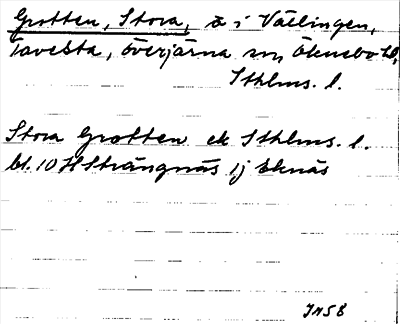 Grotten, Stora, ö i Vällingen,
Tavesta, Överjärna sn, Öknebo hd,
Sthlms. l.
Stora Grotten ek Sthlms. l.
bl. 10 H Strängnäs ij Eknäs
JM58